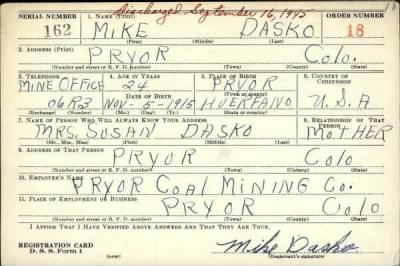 Discharged September 16, 1945
SERIAL NUMBER 1. NAME (Print) ORDER NUMBER
162 MIKE DASKO 18
(First) (Middle) (Last)
2. ADDRESS (Print)
PRYOR Colo.
(Number and street or R. F. D. number) (Town) (County) (State)
3. TELEPHONE 4. AGE IN YEARS 5. PLACE OF BIRTH 6. COUNTRY OF CITIZENSHIP
MINE OFFICE 24 PRYOR
DATE OF BIRTH (Town or county)
06R3 NOV-5-1915 HUERFANO U.S.A
(Exchange) (Number) (Mo.) (Day) (Yr.) (State or country)
7. NAME OF PERSON WHO WILL ALWAYS KNOW YOUR ADDRESS 8. RELATIONSHIP OF THAT PERSON
MRS. SUSAN DASKO MOTHER
(Mr., Mrs., Miss) (First) (Middle) (Last)
9. ADDRESS OF THAT PERSON
PRYOR Colo
(Number and street or R. F. D. number) (Town) (County) (State)
10. EMPLOYER'S NAME
PRYOR COAL MINING Co.
11. PLACE OF EMPLOYMENT OR BUSINESS
PRYOR Colo
(Number and street or R. F. D. number) (Town) (County) (State)
I AFFIRM THAT I HAVE VERIFIED ABOVE ANSWERS AND THAT THEY ARE TRUE.
REGISTRATION CARD
D. S. S. Form 1 Mike Dasko
(over) (Registrant's signature)